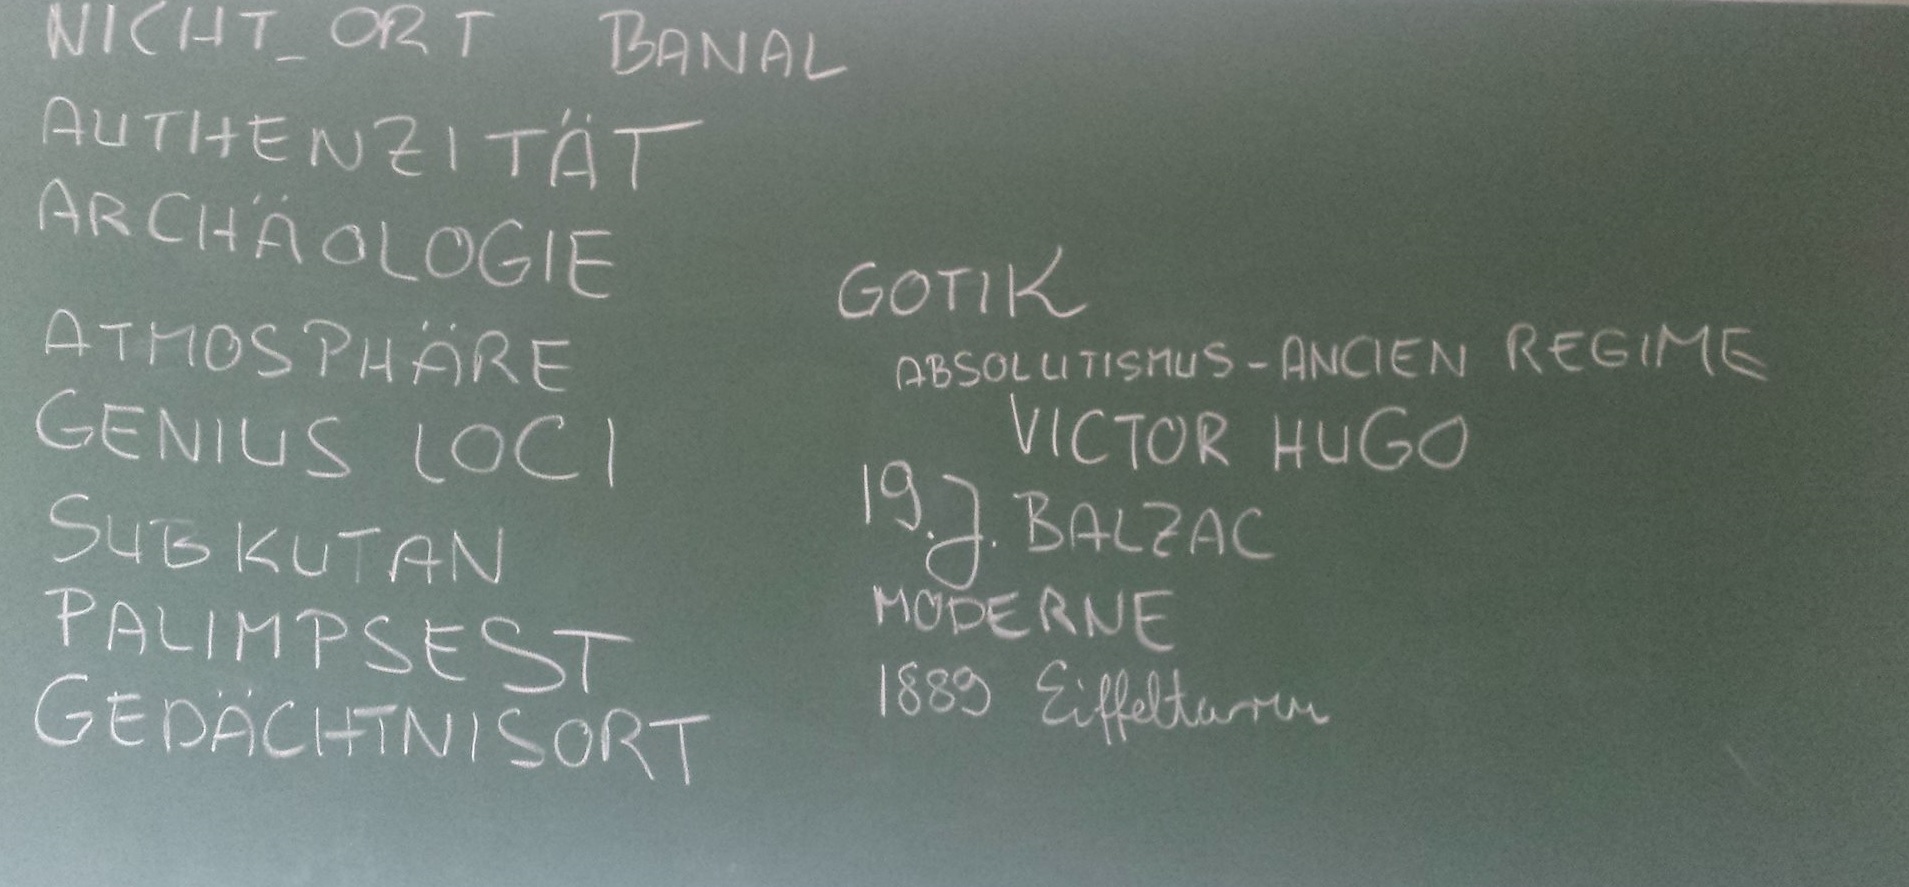 NICHT_ORT BANAL
AUTHENZITÄT
ARCHÄOLOGIE
ATMOSPHÄRE
GENIUS LOCI
SUBKUTAN
PALIMPSEST
GEDÄCHTNISORT
GOTIK
ABSOLUTISMUS - ANCIEN REGIME
VICTOR HUGO
19. J. BALZAC
MODERNE
1889 Eiffelturm